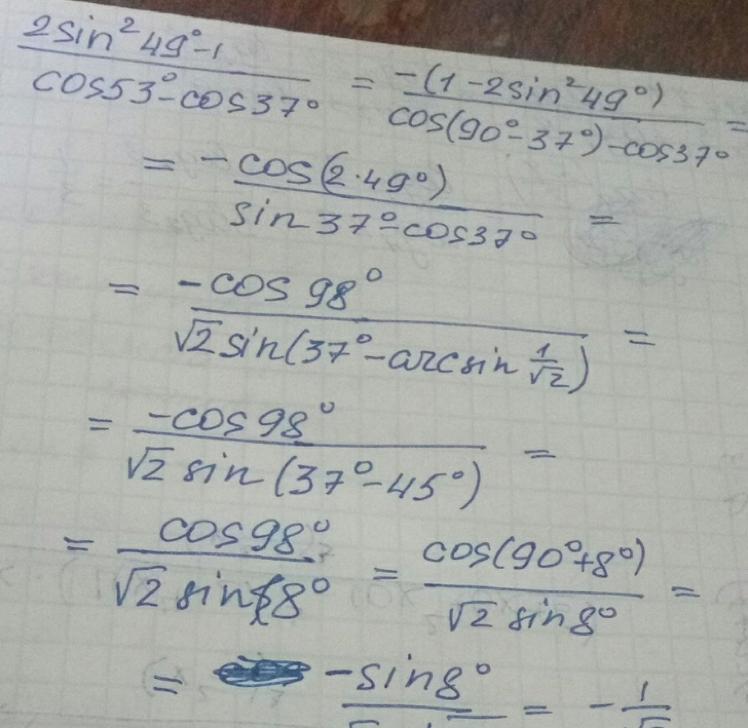 2sin²49°-1 / cos53°-cos37° = -(1-2sin²49°) / cos(90°-37°)-cos37° =
= -cos(2·49°) / sin37°-cos37° =
= -cos 98° / √2 sin(37°-arcsin 1/√2) =
= -cos98° / √2 sin (37°-45°) =
= cos98° / √2 sin 8° = cos(90°+8°) / √2 sin8° =
= -sin8° / = - 1 /